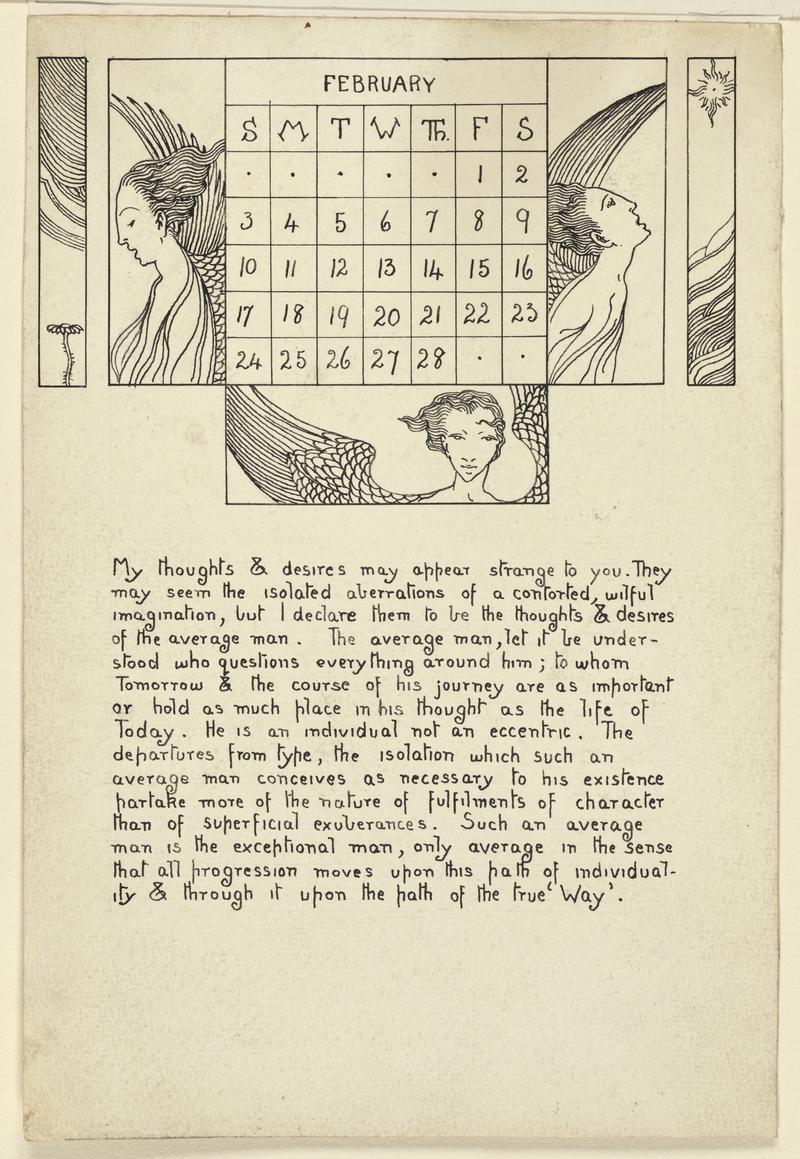 FEBRUARY
S M T W TH. F S
· · · · · 1 2
3 4 5 6 7 8 9
10 11 12 13 14 15 16
17 18 19 20 21 22 23
24 25 26 27 28 · ·
My thoughts & desires may appear strange to you. They
may seem the isolated aberrations of a contorted, wilful
imagination, but I declare them to be the thoughts & desires
of the average man. The average man, let it be under-
stood who questions everything around him; to whom
Tomorrow & the course of his journey are as important
or hold as much place in his thought as the life of
Today. He is an individual not an eccentric. The
departures from type, the isolation which such an
average man conceives as necessary to his existence
partake more of the nature of fulfilments of character
than of superficial exuberances. Such an average
man is the exceptional man, only average in the sense
that all progression moves upon this path of individual-
ity & through it upon the path of the true 'Way'.